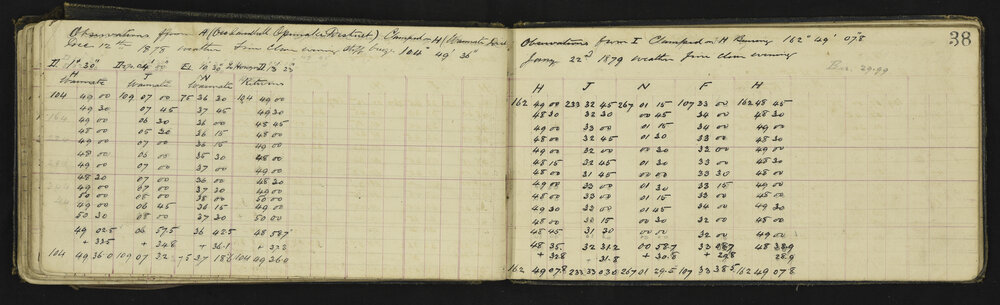 Observations from A Clamped on H (Waimate
Dec 12th 1878 weather fine clear evening stiff breeze 104° 49' 36"
H J N Returns
Waimate Waimate Waimate
104 49 00 109 07 00 75 36 30 104 49 00
49 30 07 45 37 45 49 30
49 00 06 30 36 00 48 45
48 00 05 30 36 15 48 00
49 00 07 00 36 15 49 00
48 00 06 00 35 30 48 00
49 00 07 00 37 00 49 00
48 30 07 00 36 00 48 30
49 00 07 00 37 30 49 00
50 00 08 00 38 00 50 00
49 00 06 45 36 15 49 00
50 30 08 00 37 30 50 00
49 02.5 06 57.5 36 42.5 48 58.7
+ 33.5 + 34.8 + 36.1 + 37.3
104 49 36.0 109 07 32.3 75 37 18.6 104 49 36.0
38
Observations from I Clamped on H Bearing 162° 49' 07.8
Jany 22nd 1879 weather fine clear evening
Bar. 29.99
H J N F H
162 49 00 233 32 45 267 01 15 107 33 00 162 48 45
48 30 32 30 00 45 34 00 48 30
49 00 33 00 01 15 34 00 49 00
48 00 32 45 01 30 33 15 48 00
49 00 32 00 00 30 32 00 49 00
48 15 32 45 01 30 33 00 48 30
48 00 31 45 00 00 33 30 48 00
49 00 33 00 01 30 33 15 49 00
48 00 33 00 00 30 33 00 48 00
49 30 33 00 01 45 34 00 49 30
48 00 33 15 00 30 32 00 48 00
48 45 31 30 00 00 32 00 49 00
48 35. 32 31.2 00 58.7 33 08.7 48 38.9
+ 32.8 + 31.8 + 30.8 + 29.8 28.9
162 49 07.8 233 33 03.0 267 01 29.5 107 33 38.5 162 49 07.8